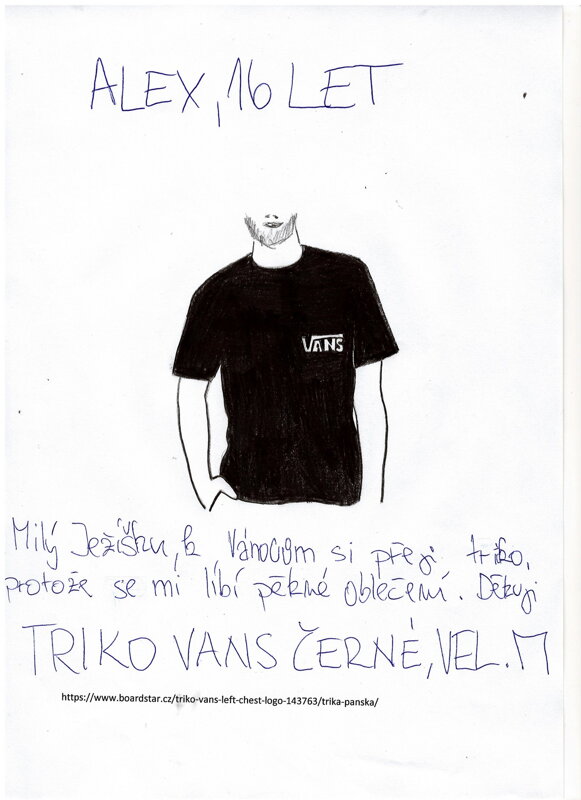 ALEX, 16 LET
VANS
Milý Ježíšku, k Vánocům si přeji triko,
protože se mi líbí pěkné oblečení. Děkuji
TRIKO VANS ČERNÉ, VEL. M
https://www.boardstar.cz/triko-vans-left-chest-logo-143763/trika-panska/